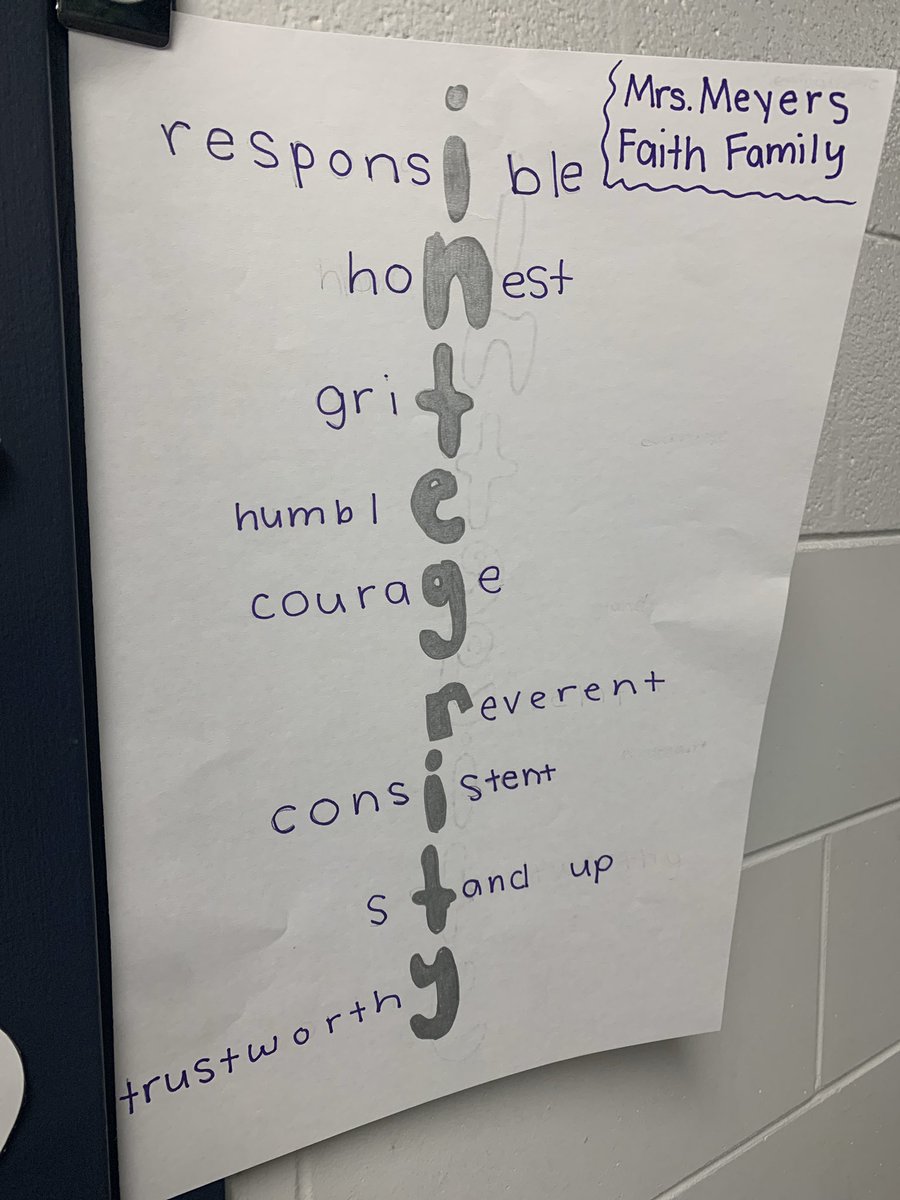 Mrs. Meyers
Faith Family
responsible
honest
grit
humble
courage
reverent
consistent
stand up
trustworthy